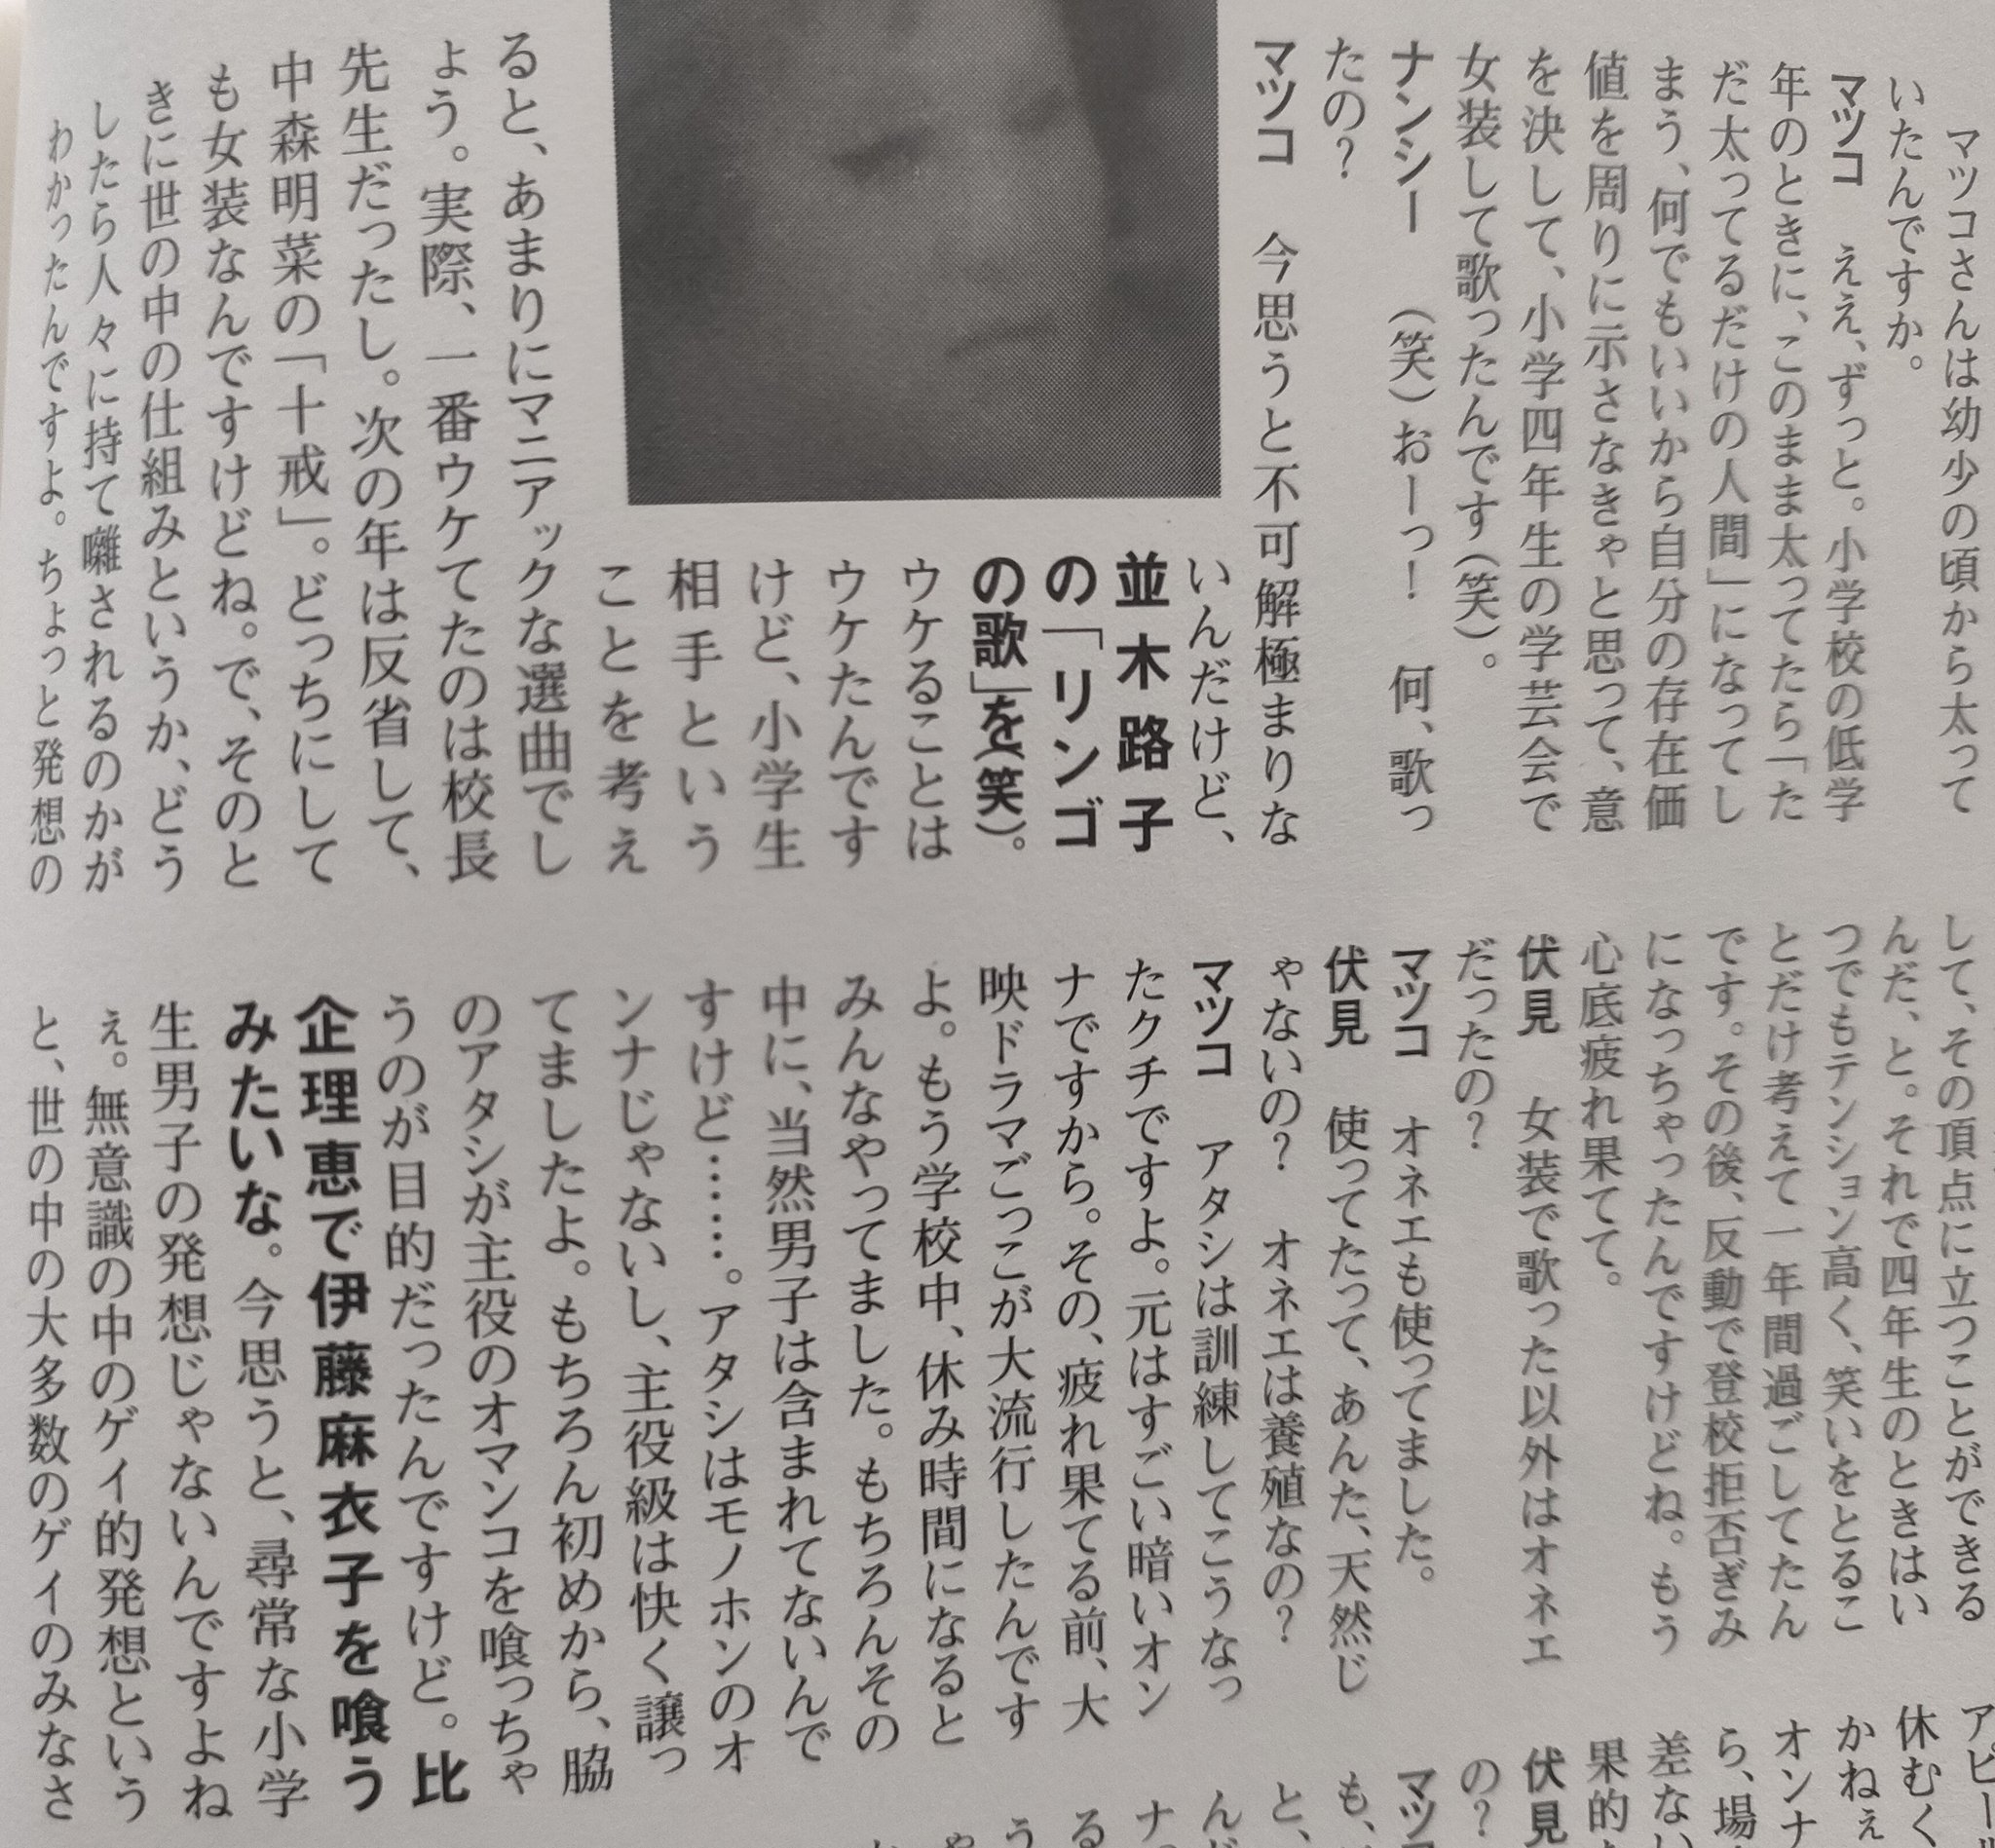 マツコさんは幼少の頃から太って
いたんですか。
マツコ　ええ、ずっと。小学校の低学
年のときに、このまま太ってたら「た
だ太ってるだけの人間」になってし
まう、何でもいいから自分の存在価
値を周りに示さなきゃと思って、意
を決して、小学四年生の学芸会で
女装して歌ったんです(笑)。
ナンシー　(笑)おーっ！　何、歌っ
たの？
マツコ　今思うと不可解極まりな
いんだけど、
並木路子
の「リンゴ
の歌」を(笑)。
ウケることは
ウケたんです
けど、小学生
相手という
ことを考え
ると、あまりにマニアックな選曲でし
ょう。実際、一番ウケてたのは校長
先生だったし。次の年は反省して、
中森明菜の「十戒」。どっちにして
も女装なんですけどね。で、そのと
きに世の中の仕組みというか、どう
したら人々に持て囃されるのかが
わかったんですよ。ちょっと発想の
して、その頂点に立つことができる
んだ、と。それで四年生のときはい
つでもテンション高く、笑いをとるこ
とだけ考えて一年間過ごしてたん
です。その後、反動で登校拒否ぎみ
になっちゃったんですけどね。もう
心底疲れ果てて。
伏見　女装で歌った以外はオネエ
だったの？
マツコ　オネエも使ってました。
伏見　使ってたって、あんた、天然じ
ゃないの？　オネエは養殖なの？
マツコ　アタシは訓練してこうなっ
たクチですよ。元はすごい暗いオン
ナですから。その、疲れ果てる前、大
映ドラマごっこが大流行したんです
よ。もう学校中、休み時間になると
みんなやってました。もちろんその
中に、当然男子は含まれてないんで
すけど……。アタシはモノホンのオ
ンナじゃないし、主役級は快く譲っ
てましたよ。もちろん初めから、脇
のアタシが主役のオマンコを喰っちゃ
うのが目的だったんですけど。比
企理恵で伊藤麻衣子を喰う
みたいな。今思うと、尋常な小学
生男子の発想じゃないんですよね
ぇ。無意識の中のゲイ的発想という
と、世の中の大多数のゲイのみなさ
アピー
休むく
かねぇ
オンナ
ら、場
差ない
果的
伏見
の？
マツコ
も、
と、
んど
ナ
る
う